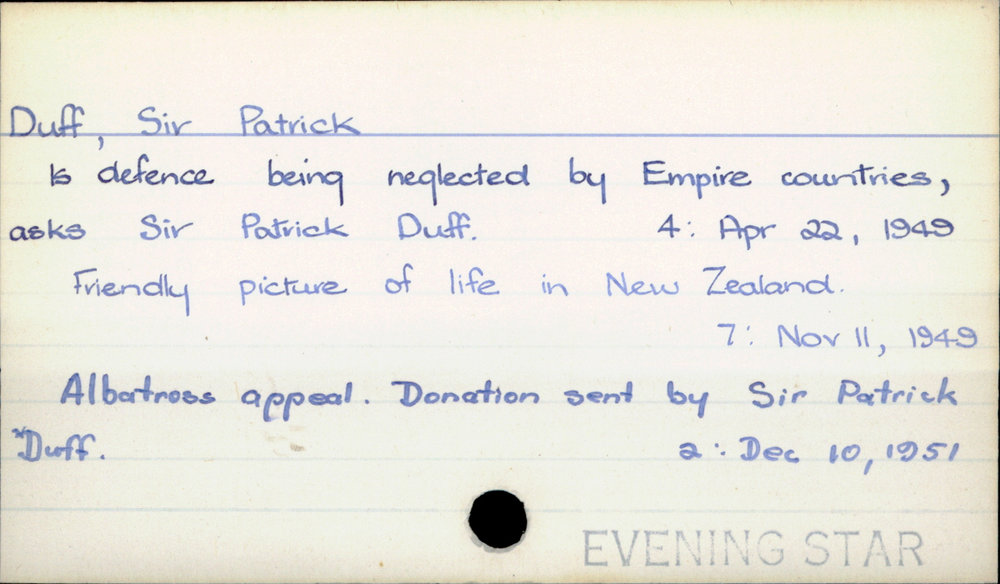 Duff, Sir Patrick
Is defence being neglected by Empire countries,
asks Sir Patrick Duff. 4: Apr 22, 1949
Friendly picture of life in New Zealand.
7: Nov 11, 1949
Albatross appeal. Donation sent by Sir Patrick
Duff. 2: Dec 10, 1951
EVENING STAR